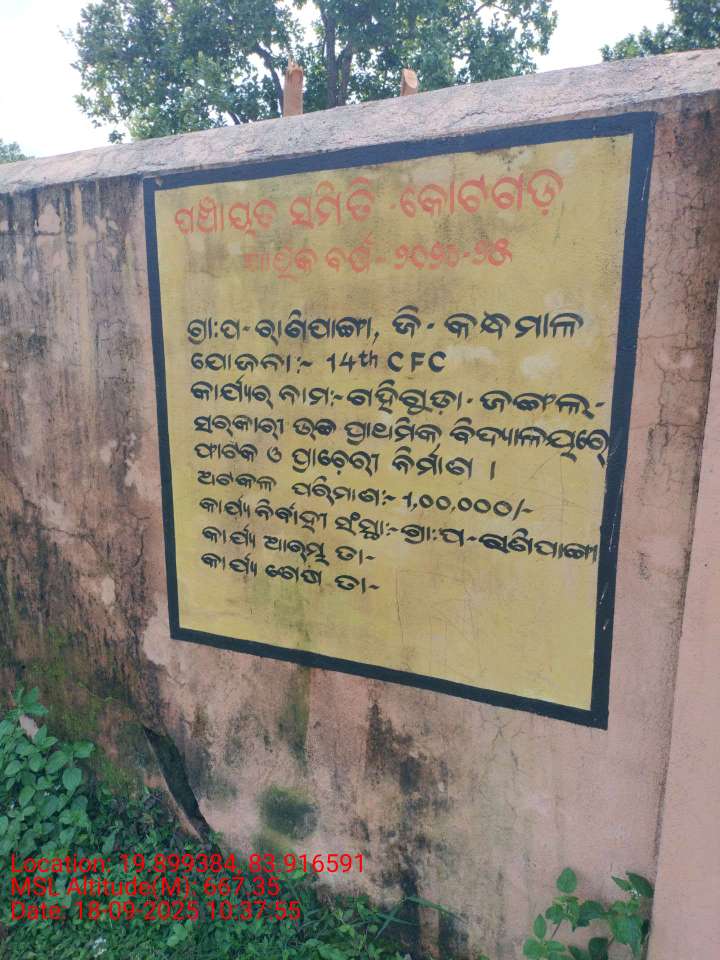 ପଞ୍ଚାୟତ ସମିତି - କୋଟଗଡ଼
ଆର୍ଥିକ ବର୍ଷ - ୨୦୨୦-୨୫
ଗ୍ରା:ପ - ରାଣିପାଙ୍ଗା, ଜି - କନ୍ଧମାଳ
ଯୋଜନା :- 14th CFC
କାର୍ଯ୍ୟର ନାମ:- ଗହିରୁଡ଼ା - ଜଙ୍ଗଲ୍ -
ସରକାରୀ ଉଚ୍ଚ ପ୍ରାଥମିକ ବିଦ୍ୟାଳୟରେ
ଫାଟକ ଓ ପ୍ରାଚେରୀ ନିର୍ମାଣ ।
ଅଟକଳ ପରିମାଣ:- 1,00,000/-
କାର୍ଯ୍ୟ ନିର୍ବାହୀ ସଂସ୍ଥା:- ଗ୍ରା:ପ - ରାଣିପାଙ୍ଗା
କାର୍ଯ୍ୟ ଆରମ୍ଭ ତା-
କାର୍ଯ୍ୟ ଶେଷ ତା-
Location: 19.899384, 83.916591
MSL Altitude(M): 667.35
Date: 18-09-2025 10:37:55